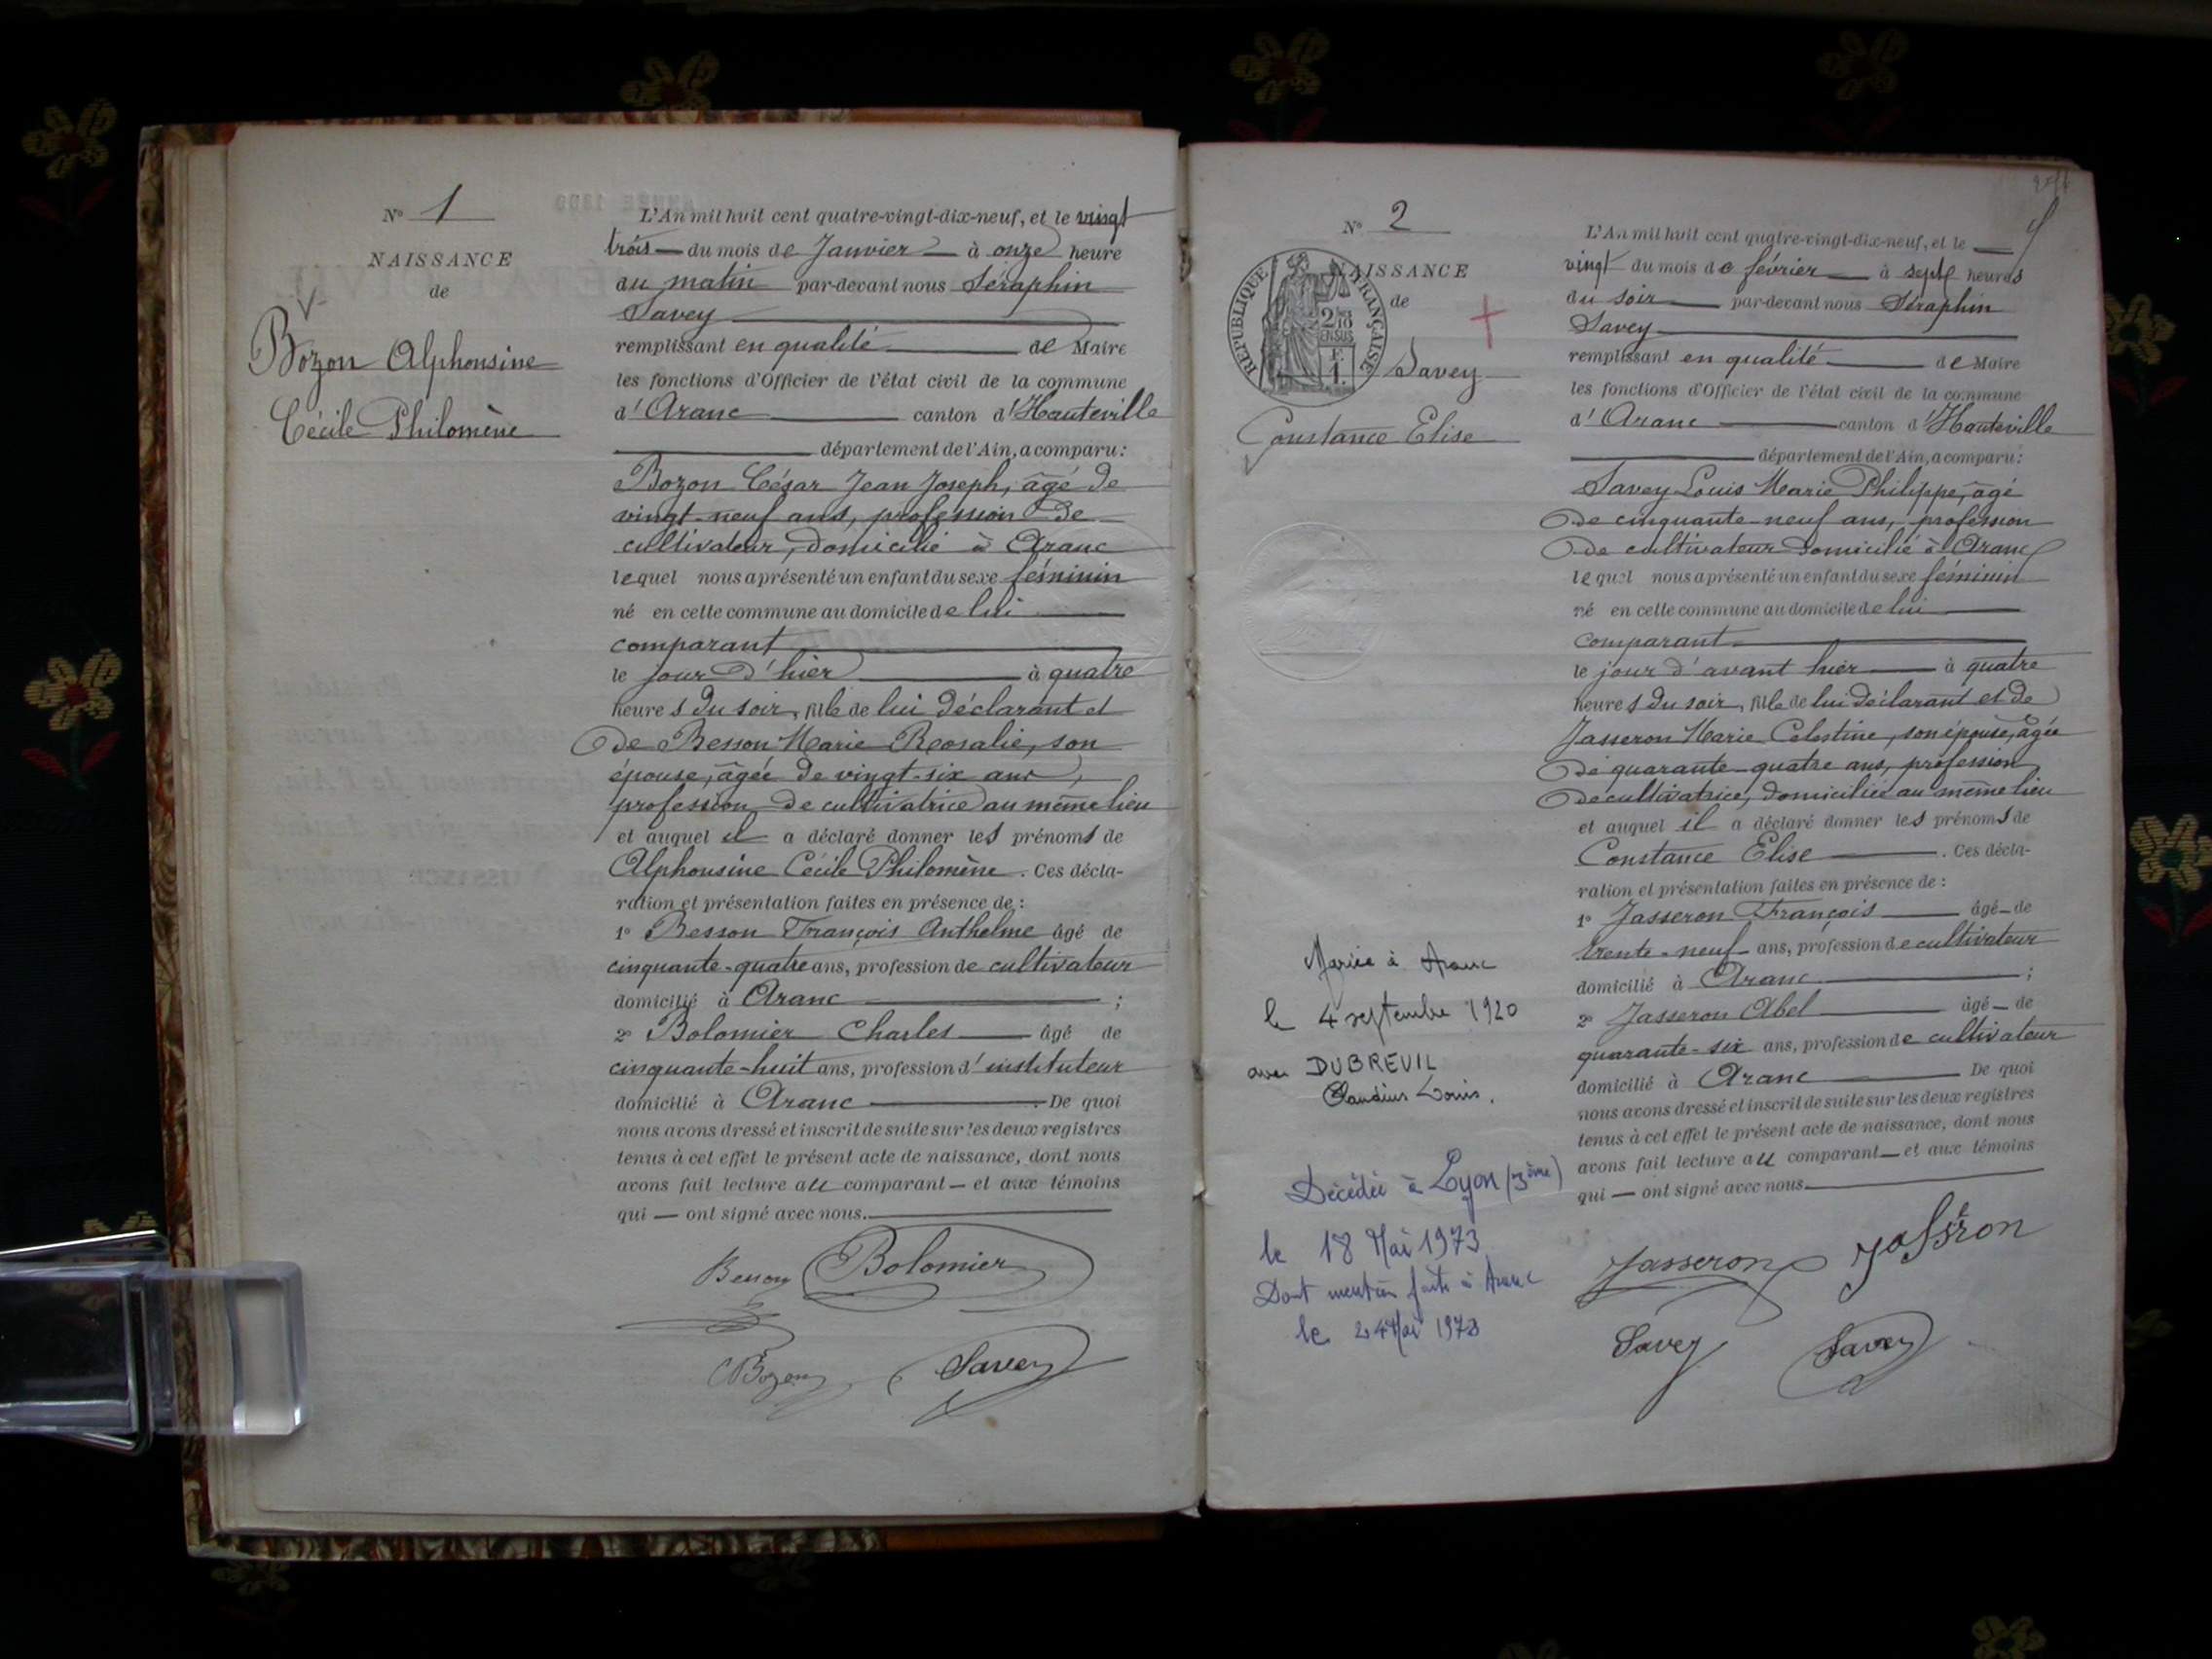 N° 1
NAISSANCE
de
Bozon Alphonsine
Cécile Philomène
L'An mil huit cent quatre-vingt-dix-neuf, et le vingt
trois — du mois de Janvier — à onze heure
du matin par-devant nous Séraphin
Savey
remplissant en qualité de Maire
les fonctions d'Officier de l'état civil de la commune
d'Aranc canton d'Hauteville
département de l'Ain, a comparu :
Bozon César Jean Joseph, âgé de
vingt-neuf ans, profession de
cultivateur, domicilié à Aranc
lequel nous a présenté un enfant du sexe féminin
né en cette commune au domicile de lui
comparant
le jour d'hier à quatre
heures du soir, fille de lui déclarant et
de Besson Marie Rosalie, son
épouse, âgée de vingt-six ans,
profession de cultivatrice au même lieu
et auquel il a déclaré donner les prénoms de
Alphonsine Cécile Philomène. Ces décla-
ration et présentation faites en présence de :
1° Besson François Anthelme âgé de
cinquante-quatre ans, profession de cultivateur
domicilié à Aranc ;
2° Bolomier Charles — âgé de
cinquante-huit ans, profession d'instituteur
domicilié à Aranc . De quoi
nous avons dressé et inscrit de suite sur les deux registres
tenus à cet effet le présent acte de naissance, dont nous
avons fait lecture au comparant — et aux témoins
qui — ont signé avec nous.
Besson Bolomier
CBozon Savey
N° 2
NAISSANCE
de
RÉPUBLIQUE FRANÇAISE
Savey
Constance Elise
Mariée à Aranc
le 4 septembre 1920
avec DUBREUIL
Claudius Louis.
Décédée à Lyon (3ème)
le 18 Mai 1973
Dont mention faite à Aranc
le 24 Mai 1973
L'An mil huit cent quatre-vingt-dix-neuf, et le —
vingt du mois de février — à sept heures
du soir — par-devant nous Séraphin
Savey
remplissant en qualité de Maire
les fonctions d'Officier de l'état civil de la commune
d'Aranc canton d'Hauteville
département de l'Ain, a comparu :
Savey Louis Marie Philippe, âgé
de cinquante-neuf ans, profession
de cultivateur domicilié à Aranc
lequel nous a présenté un enfant du sexe féminin
né en cette commune au domicile de lui
comparant
le jour d'avant hier — à quatre
heures du soir, fille de lui déclarant et de
Jasseron Marie Celestine, son épouse, âgée
de quarante-quatre ans, profession
de cultivatrice, domiciliée au même lieu
et auquel il a déclaré donner les prénoms de
Constance Elise . Ces décla-
ration et présentation faites en présence de :
1° Jasseron François — âgé — de
trente-neuf ans, profession de cultivateur
domicilié à Aranc ;
2° Jasseron Abel — âgé — de
quarante-six ans, profession de cultivateur
domicilié à Aranc De quoi
nous avons dressé et inscrit de suite sur les deux registres
tenus à cet effet le présent acte de naissance, dont nous
avons fait lecture au comparant — et aux témoins
qui — ont signé avec nous.
Jasseron Jasseron
Savey Savey